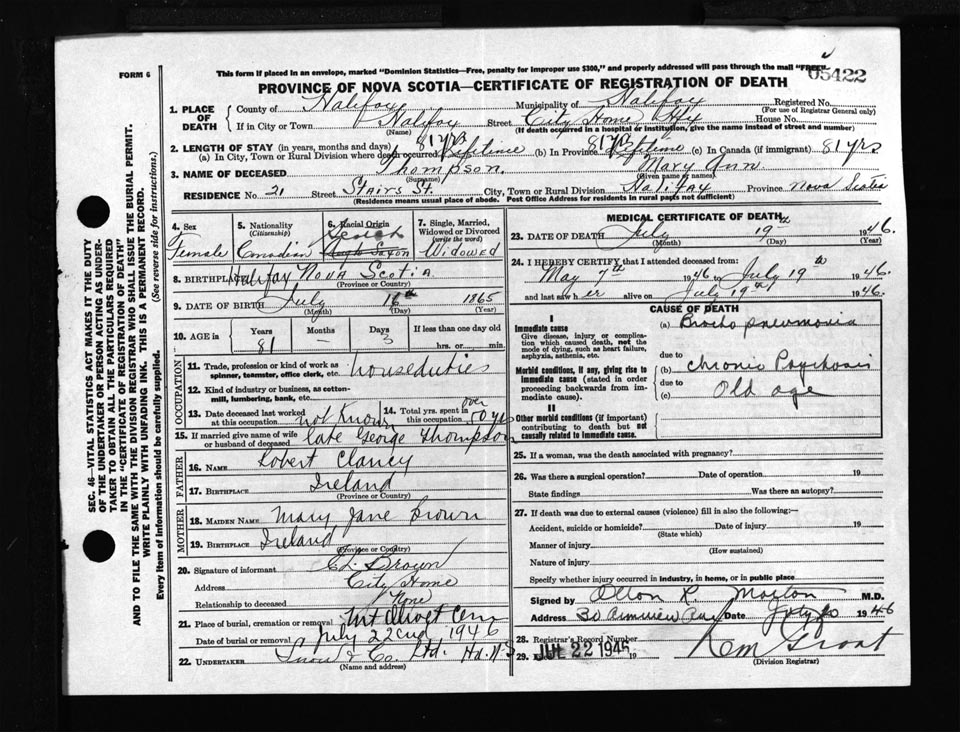 FORM 6
This form if placed in an envelope, marked "Dominion Statistics—Free, penalty for improper use $300," and properly addressed will pass through the mail "FREE"
05422
PROVINCE OF NOVA SCOTIA—CERTIFICATE OF REGISTRATION OF DEATH
1. PLACE OF DEATH
County of Halifax Municipality of Halifax Registered No.
(For use of Registrar General only)
If in City or Town Halifax Street City Home Hfx House No.
(Name) (If death occurred in a hospital or institution, give the name instead of street and number)
2. LENGTH OF STAY (in years, months and days) 81 yrs 81 yrs
(a) In City, Town or Rural Division where death occurred Lifetime (b) In Province Lifetime (c) In Canada (if immigrant) 81 yrs
3. NAME OF DECEASED Thompson. Mary Ann
(Surname) (Given name or names)
RESIDENCE No. 21 Street Stairs St. City, Town or Rural Division Halifax Province Nova Scotia
(Residence means usual place of abode. Post Office Address for residents in rural parts not sufficient)
4. Sex
Female
5. Nationality
(Citizenship)
Canadian
6. Racial Origin
Scotch
Anglo Saxon
7. Single, Married, Widowed or Divorced
(write the word)
Widowed
8. BIRTHPLACE Halifax Nova Scotia
(Province or Country)
9. DATE OF BIRTH July 16th 1865
(Month) (Day) (Year)
10. AGE in Years Months Days If less than one day old
81 — 3 hrs. or min.
OCCUPATION
11. Trade, profession or kind of work as spinner, teamster, office clerk, etc. houseduties
12. Kind of industry or business, as cotton-mill, lumbering, bank, etc.
13. Date deceased last worked at this occupation not Known
14. Total yrs. spent in this occupation over 50 yrs
15. If married give name of wife or husband of deceased late George Thompson
FATHER
16. NAME Robert Clancy
17. BIRTHPLACE Ireland
(Province or Country)
MOTHER
18. MAIDEN NAME Mary Jane Brown
19. BIRTHPLACE Ireland
(Province or Country)
20. Signature of informant Ed. Brown
Address City Home
Relationship to deceased None
21. Place of burial, cremation or removal Mt Olivet Cem
Date of burial or removal July 22nd 1946
22. UNDERTAKER Snow & Co. Ltd.
(Name and address)
MEDICAL CERTIFICATE OF DEATH
23. DATE OF DEATH July 19th 1946.
(Month) (Day) (Year)
24. I HEREBY CERTIFY, that I attended deceased from:
May 7th 1946 to July 19th 1946.
and last saw her alive on July 19th 1946.
CAUSE OF DEATH
I
Immediate cause
Give disease, injury or complication which caused death, not the mode of dying, such as heart failure, asphyxia, asthenia, etc.
(a) Broncho pneumonia
due to
Morbid conditions, if any, giving rise to immediate cause (stated in order proceeding backwards from immediate cause).
(b) chronic Psychosis
due to
(c) Old age
II
Other morbid conditions (if important) contributing to death but not causally related to immediate cause.
25. If a woman, was the death associated with pregnancy?
26. Was there a surgical operation? Date of operation 19
State findings Was there an autopsy?
27. If death was due to external causes (violence) fill in also the following:—
Accident, suicide or homicide? Date of injury 19
(State which)
Manner of injury
(How sustained)
Nature of injury
Specify whether injury occurred in industry, in home, or in public place
Signed by R. Morton M.D.
Address Date July 20 1946
28. Registrar's Record Number
29. JUL 22 1946 19
(Division Registrar)
SEC. 46—VITAL STATISTICS ACT MAKES IT THE DUTY
OF THE UNDERTAKER OR PERSON ACTING AS UNDER-
TAKER TO OBTAIN ALL THE PARTICULARS REQUIRED
IN THE "CERTIFICATE OF REGISTRATION OF DEATH"
AND TO FILE THE SAME WITH THE DIVISION REGISTRAR WHO SHALL ISSUE THE BURIAL PERMIT.
WRITE PLAINLY WITH UNFADING INK. THIS IS A PERMANENT RECORD.
Every item of Information should be carefully supplied. (See reverse side for instructions.)